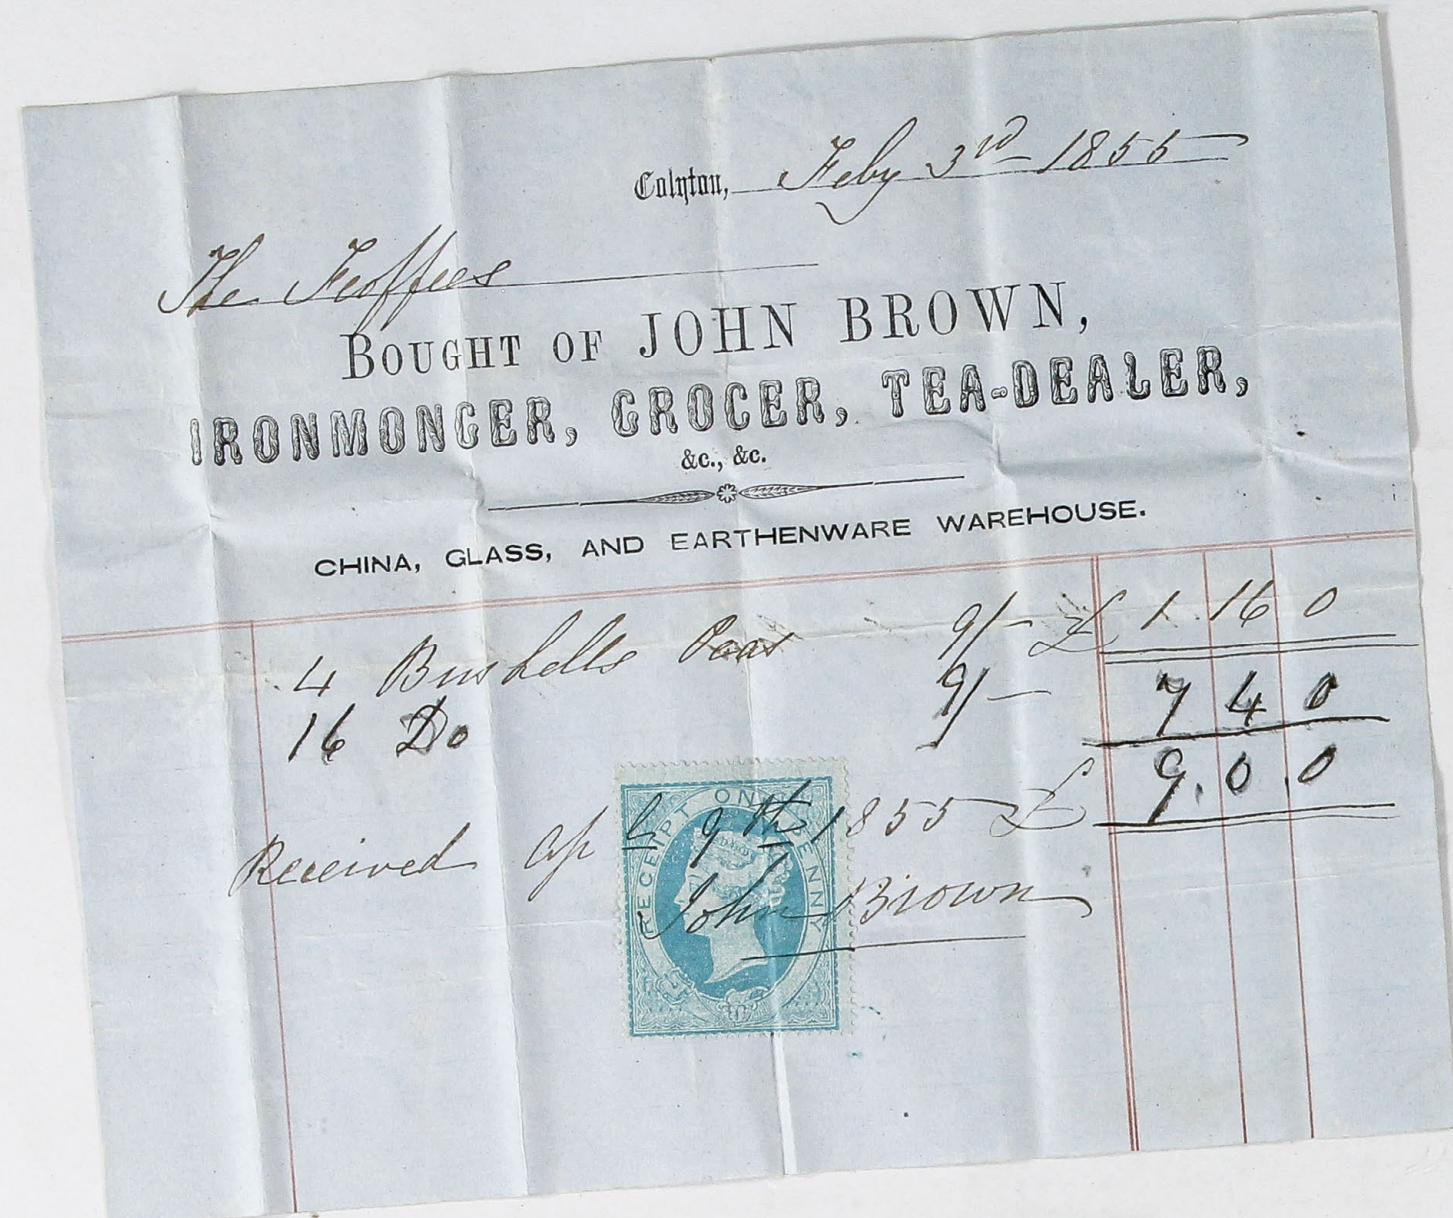 Colyton, Feby 3rd 1855
The Feoffees
BOUGHT OF JOHN BROWN,
IRONMONGER, GROCER, TEA-DEALER,
&c., &c.
CHINA, GLASS, AND EARTHENWARE WAREHOUSE.
4 Bushells Peas 9/- £ 1 16 0
16 Do 9/- 7 4 0
£ 9. 0. 0
Received Apl 9th 1855
John Brown
RECEIPT ONE PENNY